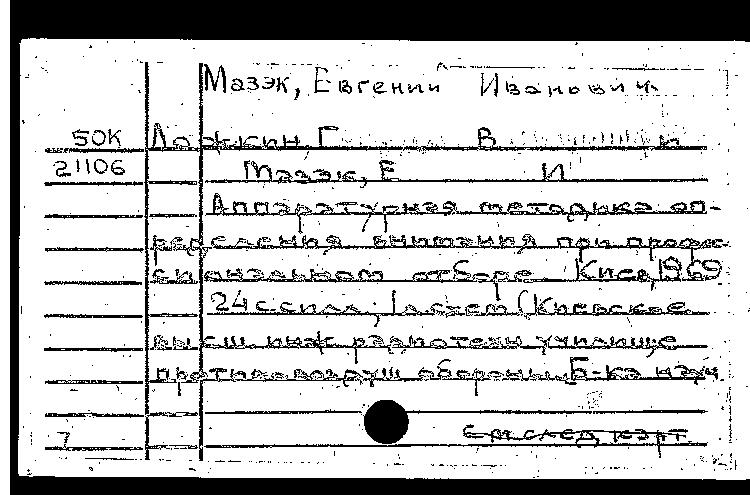 Мазэк, Евгений Иванович
50К Ложкин, Г В и
21106 Мазэк, Е И
Аппаратурная методика оп-
ределения внимания при профес
сиональном отборе Киев, 1969
24 с силл; 1 л схем (Киевское
высш инж радиотехн училище
противовоздуш обороны Б-ка науч
7 см след карт